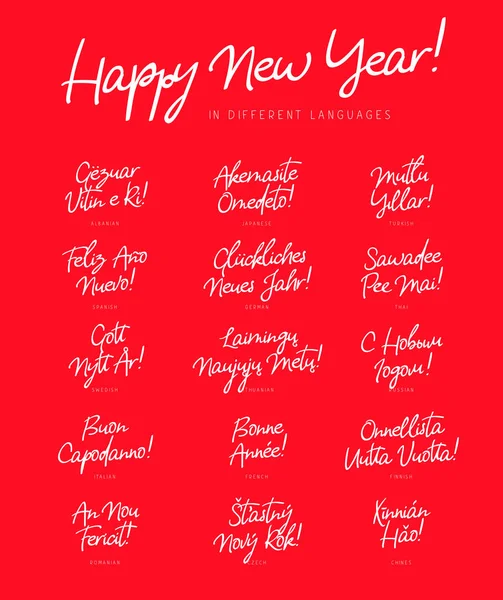 Happy New Year!
IN DIFFERENT LANGUAGES
Gëzuar
Vitin e Ri!
ALBANIAN
Akemasite
Omedeto!
JAPANESE
Mutlu
Yıllar!
TURKISH
Feliz Año
Nuevo!
SPANISH
Glückliches
Neues Jahr!
GERMAN
Sawadee
Pee Mai!
THAI
Gott
Nytt År!
SWEDISH
Laimingų
Naujųjų Metų!
LITHUANIAN
С Новым
Годом!
RUSSIAN
Buon
Capodanno!
ITALIAN
Bonne
Année!
FRENCH
Onnellista
Uutta Vuotta!
FINNISH
An Nou
Fericit!
ROMANIAN
Šťastný
Nový Rok!
CZECH
Xinnián
Hăo!
CHINES